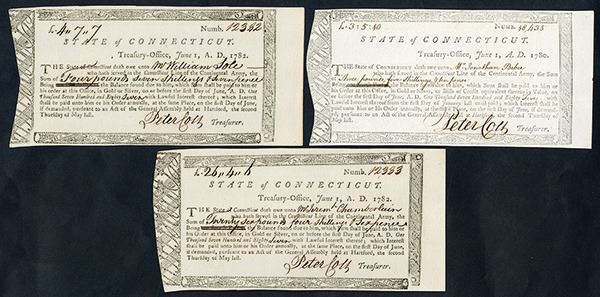 L 4 " 7 " 7 Numb. 12382
STATE of CONNECTICUT.
Treasury-Office, June 1, A. D. 1782.
THE State of Connecticut doth owe unto Mr William Sole
who hath served in the Connecticut Line of the Continental Army, the
Sum of Four pound Seven Shillings & Seven pence
Being the Balance found due to him, which Sum shall be paid to him or
his Order at this Office, in Gold or Silver, on or before the first Day of June, A. D. One
Thousand Seven Hundred and Eighty Seven with Lawful Interest thereof; which Interest
shall be paid unto him or his Order annually, at the same Place, on the first Day of June,
if demanded, pursuant to an Act of the General Assembly held at Hartford, the second
Thursday of May last.
Peter Colt Treasurer.
L 3:5:10 Numb.
STATE of CONNECTICUT.
Treasury-Office, June 1, A. D. 1780.
THE State of Connecticut doth owe unto Mr. Jonathan
who hath served in the Connecticut Line of the Continental Army, the
Sum of Three pounds five Shillings
Being the Balance found due to him, which Sum shall be paid to him or
his Order at this Office, in Gold or Silver, or Bills of Credit equivalent
on or before the first Day of June, A. D. One Thousand Seven Hundred and Eighty
Thursday of May last.
Peter Colt Treasurer.
L 26 " 4 " 6 Numb. 12383
STATE of CONNECTICUT.
Treasury-Office, June 1, A. D. 1782.
THE State of Connecticut doth owe unto Mr Jeremh Chamberlain
who hath served in the Connecticut Line of the Continental Army, the
Sum of Twenty Six pound four Shillings & Sixpence
Being the Balance found due to him, which Sum shall be paid to him or
his Order at this Office, in Gold or Silver, on or before the first Day of June, A. D. One
Thousand Seven Hundred and Eighty Seven with Lawful Interest thereof; which Interest
shall be paid unto him or his Order annually, at the same Place, on the first Day of June,
if demanded, pursuant to an Act of the General Assembly held at Hartford, the second
Thursday of May last.
Peter Colt Treasurer.